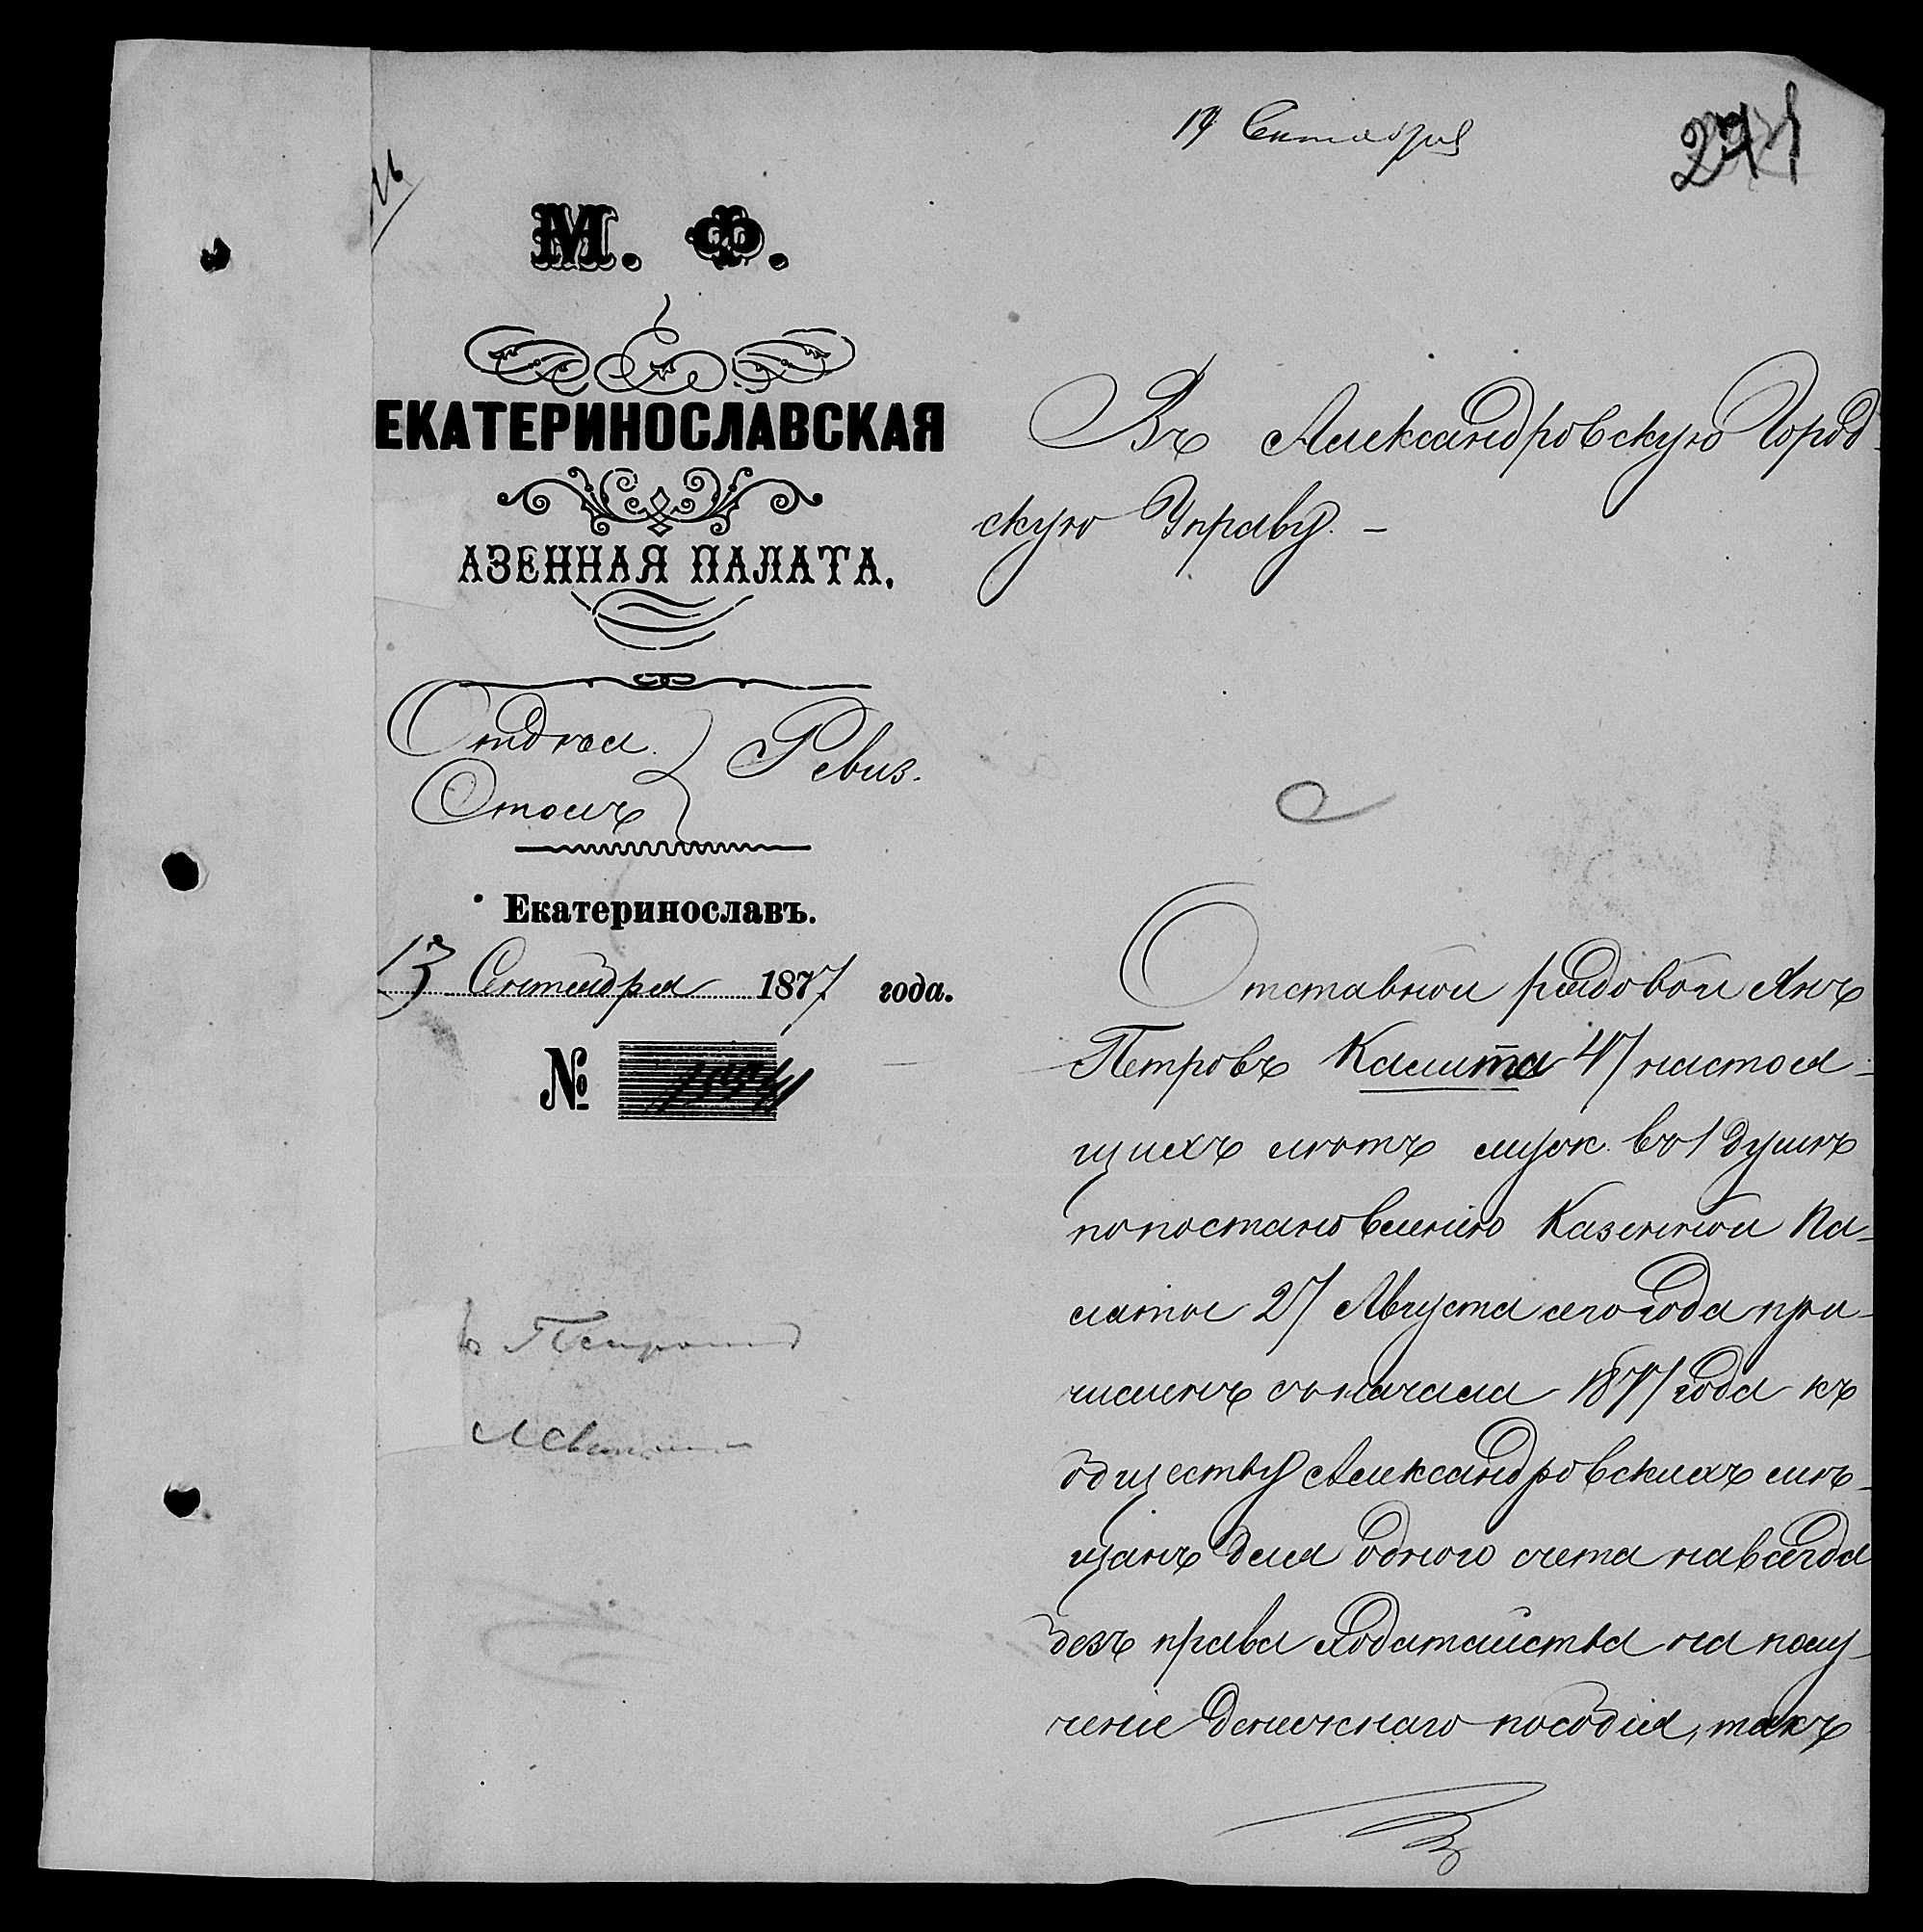 19 Сентября
М. Ф.
ЕКАТЕРИНОСЛАВСКАЯ
АЗЕННАЯ ПАЛАТА.
Отдѣл.
Столъ
Ревиз.
Екатеринославъ.
13 Сентября 1877 года.
№
Въ Александровскую Город-
скую Управу. –
Отставной рядовой Янъ
Петровъ Калита 47 настоя-
щихъ лѣтъ муж. въ 1 душѣ
по постановленію Казенной Па-
латы 27 Августа сего года при-
численъ съ начала 1877 года къ
обществу Александровскихъ мѣ-
щанъ для одного счета навсегда
безъ права ходатайства на полу-
ченіе денежнаго пособія, такъ